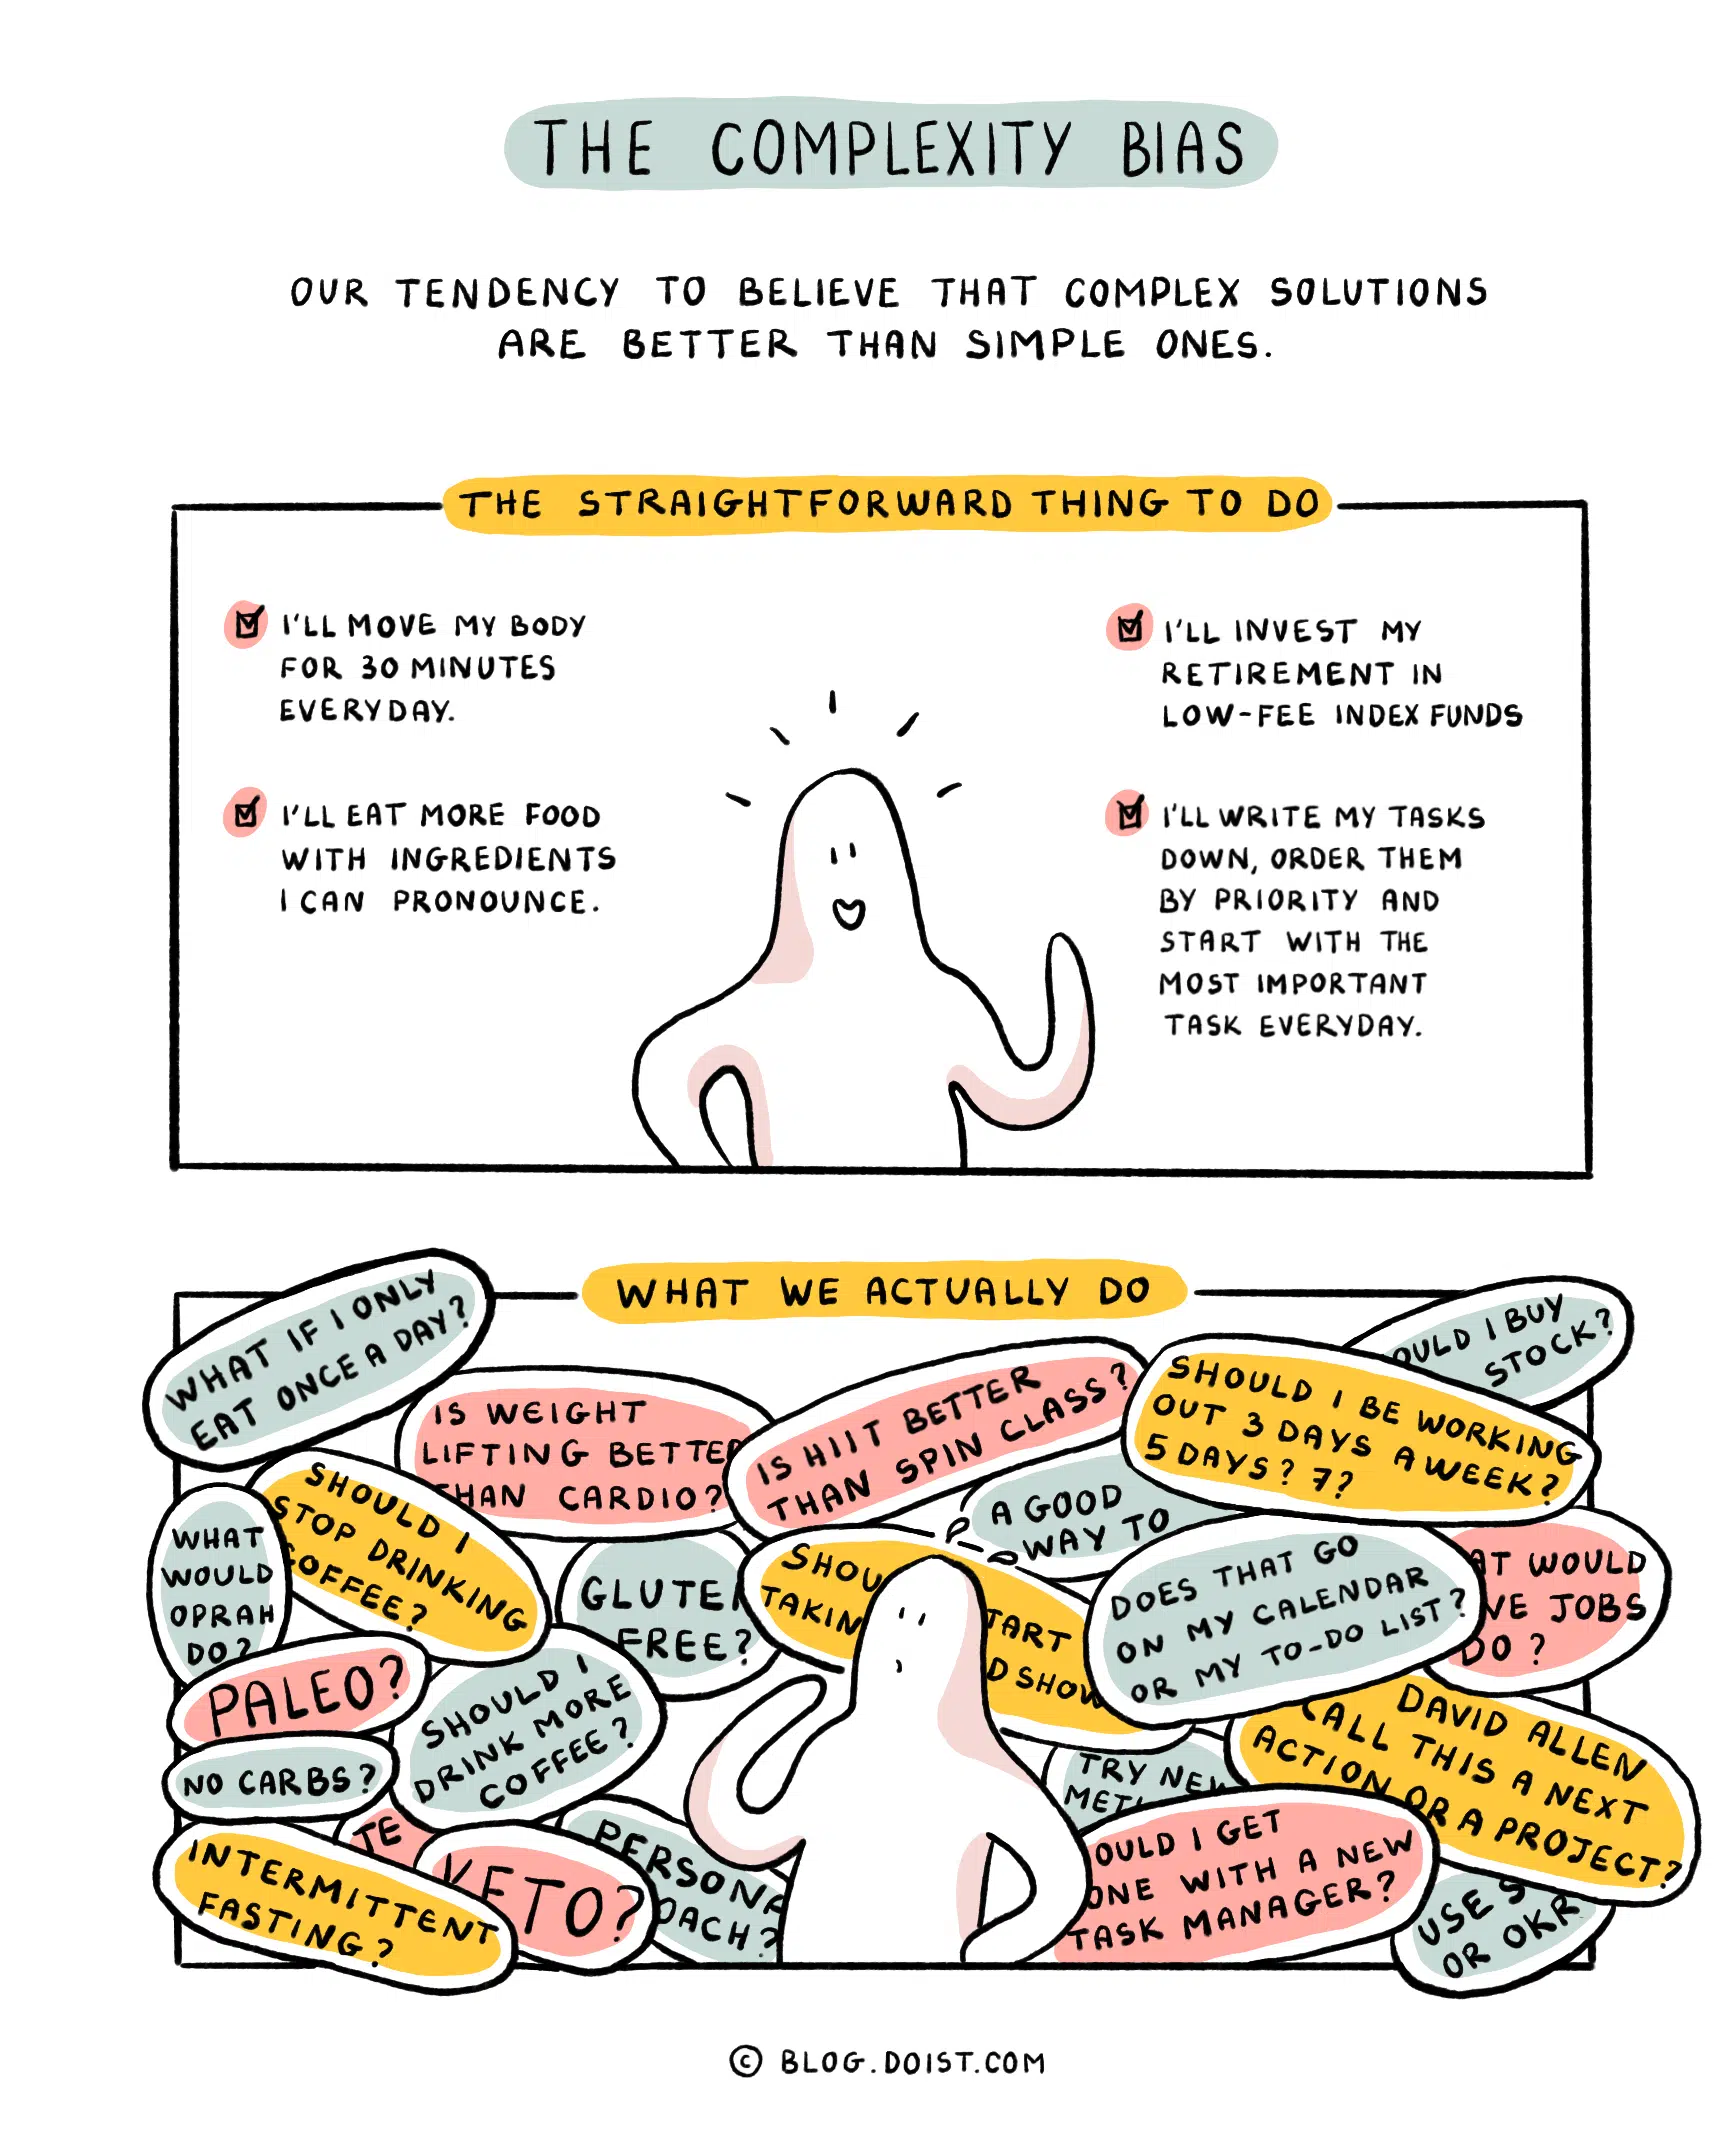 THE COMPLEXITY BIAS
OUR TENDENCY TO BELIEVE THAT COMPLEX SOLUTIONS
ARE BETTER THAN SIMPLE ONES.
THE STRAIGHTFORWARD THING TO DO
I'LL MOVE MY BODY
FOR 30 MINUTES
EVERYDAY.
I'LL EAT MORE FOOD
WITH INGREDIENTS
I CAN PRONOUNCE.
I'LL INVEST MY
RETIREMENT IN
LOW-FEE INDEX FUNDS
I'LL WRITE MY TASKS
DOWN, ORDER THEM
BY PRIORITY AND
START WITH THE
MOST IMPORTANT
TASK EVERYDAY.
WHAT WE ACTUALLY DO
WHAT IF I ONLY
EAT ONCE A DAY?
IS WEIGHT
LIFTING BETTE
HAN CARDIO?
IS HIIT BETTER
THAN SPIN CLASS?
SHOULD I BE WORKING
OUT 3 DAYS A WEEK?
5 DAYS? 7?
OULD I BUY
STOCK?
SHOULD I
STOP DRINKING
COFFEE?
WHAT
WOULD
OPRAH
DO?
GLUTE
FREE?
A GOOD
WAY TO
SHOU
TAKIN
TART
D SHOW
DOES THAT GO
ON MY CALENDAR
OR MY TO-DO LIST?
AT WOULD
VE JOBS
DO?
PALEO?
SHOULD I
DRINK MORE
COFFEE?
NO CARBS?
TRY NEW
MET
DAVID ALLEN
CALL THIS A NEXT
ACTION OR A PROJECT?
TE
KETO?
PERSONA
OACH?
INTERMITTENT
FASTING?
OULD I GET
ONE WITH A NEW
TASK MANAGER?
USE S
OR OKR
© BLOG.DOIST.COM